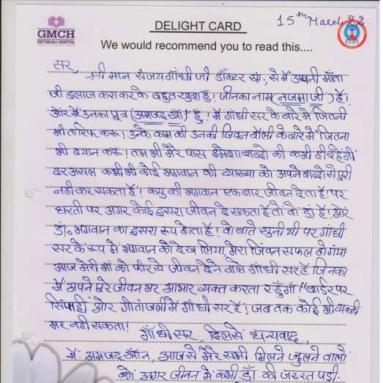 GMCH
GEETANJALI HOSPITAL
DELIGHT CARD
15th March 22
We would recommend you to read this....
सर,
श्री मान संजय गाँधी जी डॉक्टर सा, से में अपनी माता
जी इलाज करा कर के बहुत खुश हुँ। जीनका नाम नजमा जी है।
और में उनका पुत्र (अमजद खाँ) हुँ। में गाँधी सर के बारे में जितनी
भी तारिफ करू। उनके काम की उनकी जिवन शैली के बारे में जितना
भी बयान करू। तब भी मेरे पास हमेशा शब्दो की कमी ही रहेगी
दरअसल कभी भी कोई भगवान की व्याख्या को अपने शब्दो से पुरी
नही कर सकता है। क्यु की भगवान एक बार जीवन देता है। पर
धरती पर अगर कोई दुसरा जीवन दे सकता है तो वो डॉ है। और
डॉ. भगवान का दुसरा रूप होता है। ये बाते सुनी थी पर गाँधी
सर के रूप में भगवान को देख लिया, मेरा जिवन सफल हो गया
आज मेरी माँ को फीर से जीवन देने वाले गाँधी सर है जिनका
में अपने पुरे जीवन भर आभार व्यक्त करता रहुँगा "बाईर पर
सिपाही और गीतांजली में गाँधी सर है। जब तक कोई भी
मर नही सकता।
गाँधी सर, दिल से धन्यवाद,
में: अमजद खाँन, आज से मेरे सभी मिलने जुलने वालो
को अगर जीवन में कभी डॉ की जरूरत पडी.